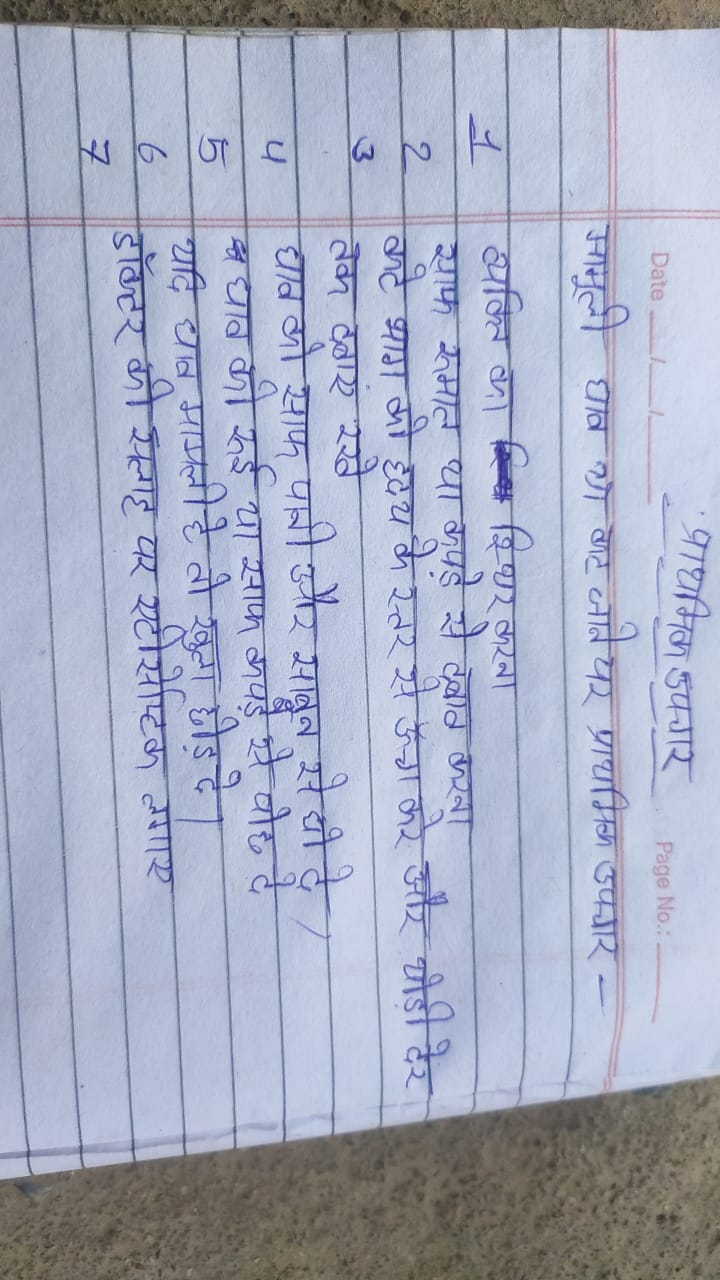 प्राथमिक उपचार
Date __/__/__ Page No.: ____
मामूली घाव या कट जाने पर प्राथमिक उपचार –
1 व्यक्ति का स्थिर करना
2 साफ रुमाल या कपड़े से दबाव करना
3 कटे भाग को हृदय के स्तर से ऊंचा करे और थोड़ी देर
तक दबाएं रखे
4 घाव को साफ पानी और साबुन से धो दे /
5 घाव को रूई या साफ कपड़े से पोछ दे
6 यदि घाव मामूली है तो खुला छोड़ दे।
7 डॉक्टर की सलाह पर एंटीसेप्टिक लगाए